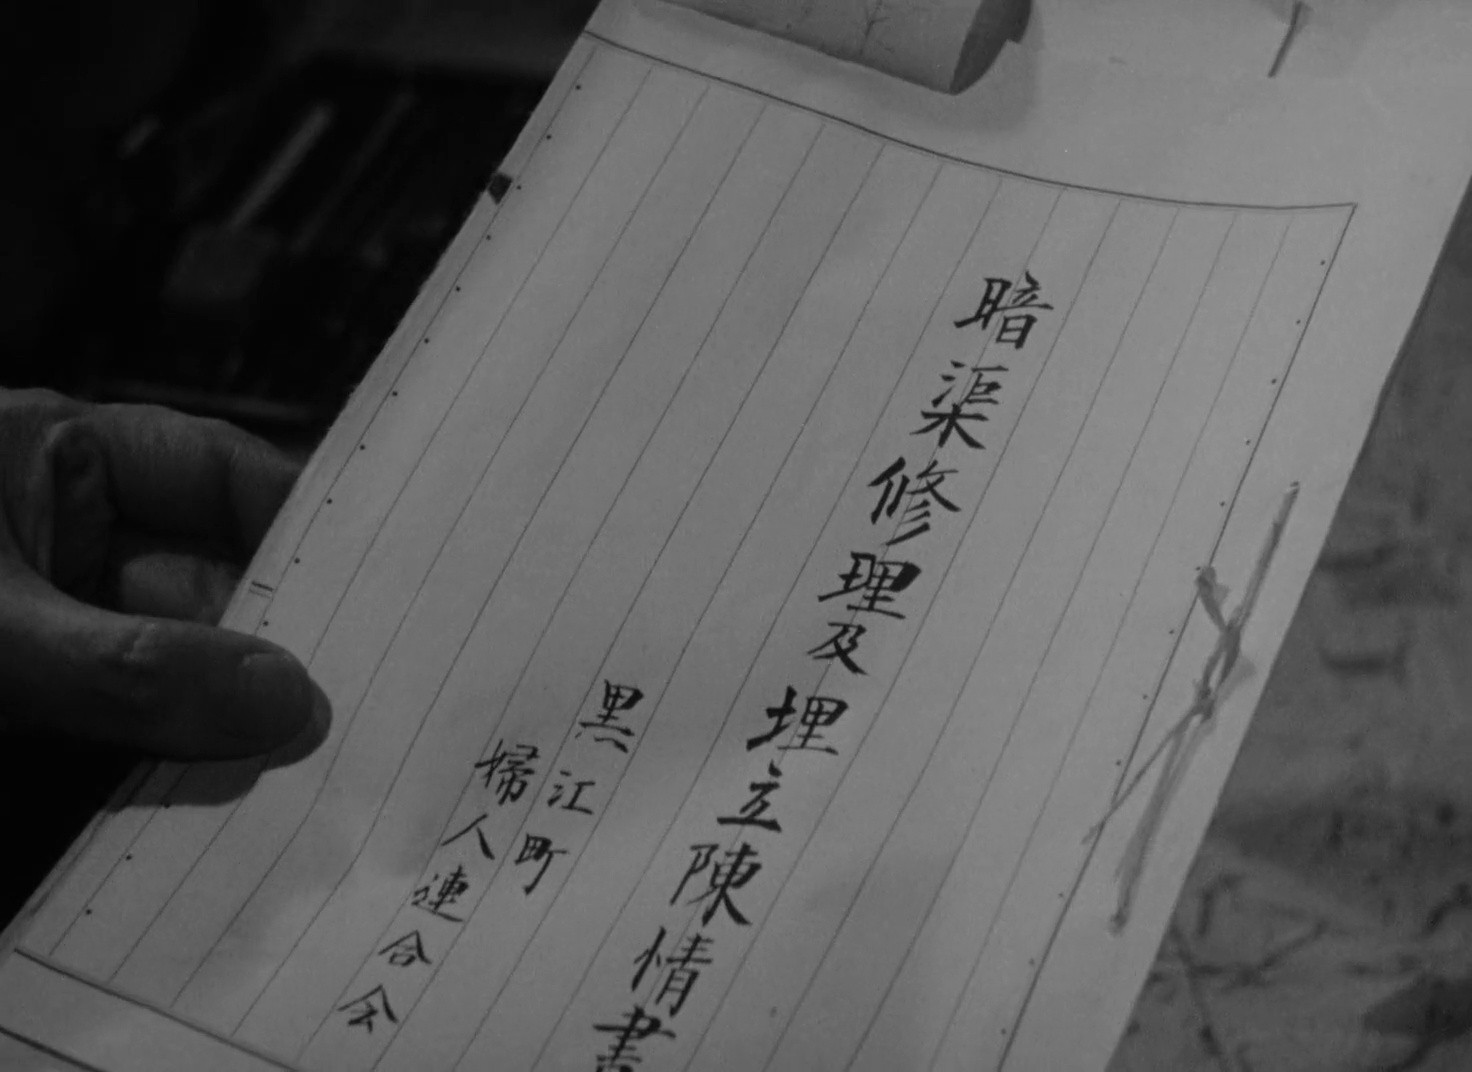 暗渠修理及埋立陳情書
黒江町
婦人連合会